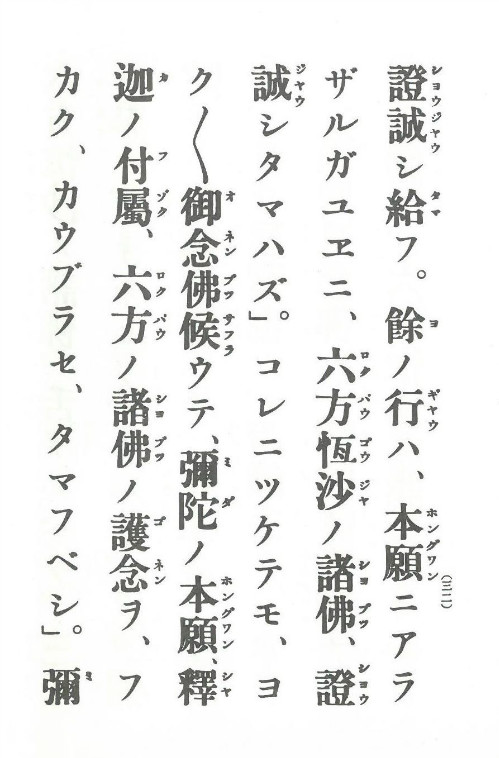 證誠シ給フ。餘ノ行ハ、本願ニアラ
ザルガユヱニ、六方恆沙ノ諸佛、證
誠シタマハズ」。コレニツケテモ、ヨ
ク〱御念佛候ウテ、彌陀ノ本願、釋
迦ノ付屬、六方ノ諸佛ノ護念ヲ、フ
カク、カウブラセ、タマフベシ。」彌
(三二)